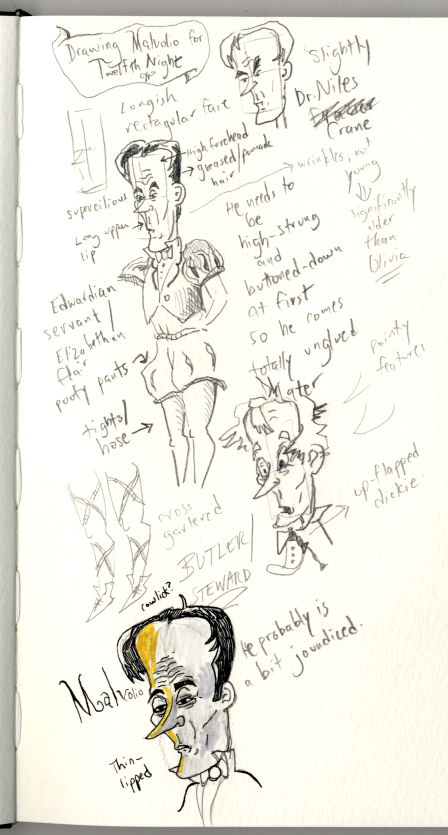 Drawing Malvolio for
Twelfth Night
slightly
Dr. Niles
Crane
Longish
rectangular face
High forehead
greased/pomade
hair
wrinkles, not
young
significantly
older
than
Olivia
supercilious
Long upper
lip
He needs to
be
high-strung
and
buttoned-down
at first
so he comes
totally unglued
later
Edwardian
servant/
Elizabethan
flair
poofy pants
tights/
hose
pointy
features
up-flapped
dickie
cross
gartered
BUTLER/
STEWARD
cowlick?
He probably is
a bit jaundiced.
Malvolio
Thin-
lipped